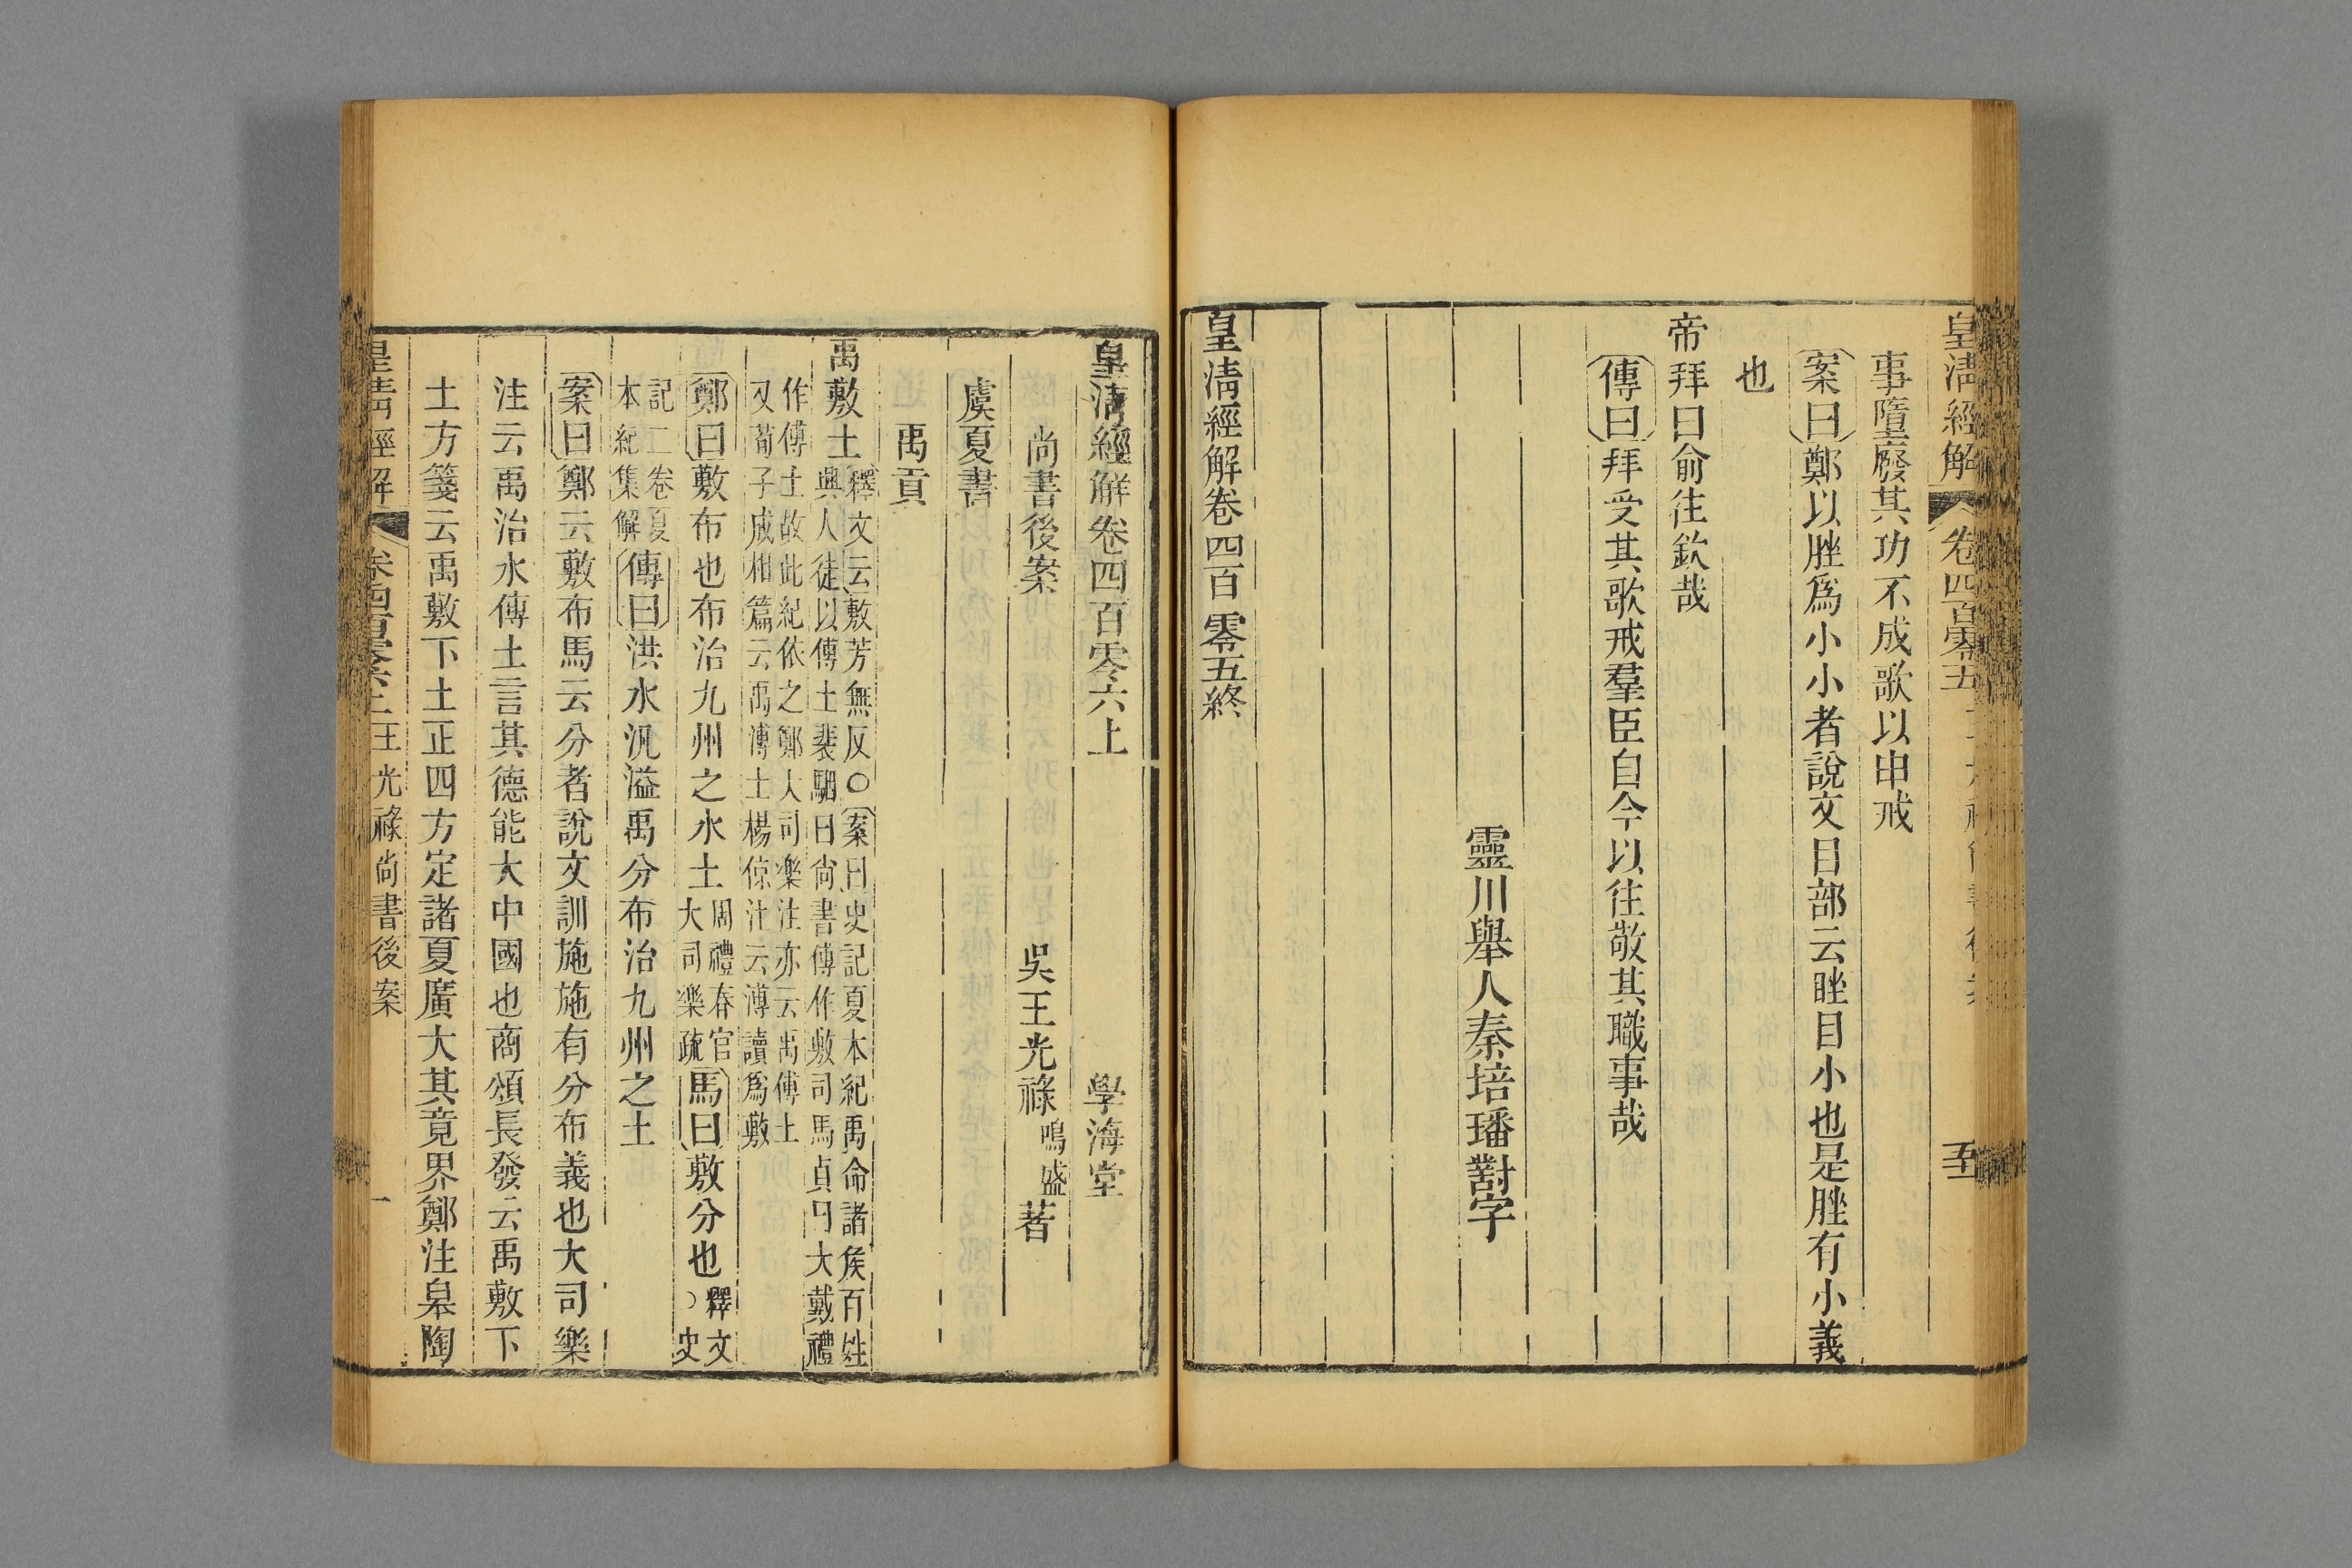 皇清經解 卷四百零五
事墮廢其功不成歌以申戒
案曰鄭以脞爲小小者說文目部云睉目小也是脞有小義
也
帝拜曰俞往欽哉
傳曰拜受其歌戒羣臣自今以往敬其職事哉
靈川舉人秦培璠對字
皇清經解卷四百零五終
皇清經解卷四百零六上 學海堂
尚書後案 吳王光祿鳴盛著
虞夏書
禹貢
禹敷土釋文云敷芳無反○案曰史記夏本紀禹命諸矦百姓
興人徒以傅土裴駰曰尚書傅作敷司馬貞曰大戴禮
作傅土故此紀依之鄭大司樂注亦云禹傅土
又荀子成相篇云禹溥土楊倞注云溥讀爲敷
鄭曰敷布也布治九州之水土周禮春官大司樂疏馬曰敷分也釋文○史
記二卷夏本紀集解傳曰洪水汎溢禹分布治九州之土
案曰鄭云敷布馬云分者說文訓施施有分布義也大司樂
注云禹治水傅土言其德能大中國也商頌長發云禹敷下
土方箋云禹敷下土正四方定諸夏廣大其竟界鄭注皋陶
皇清經解 卷四百零六上 王光祿尚書後案 一